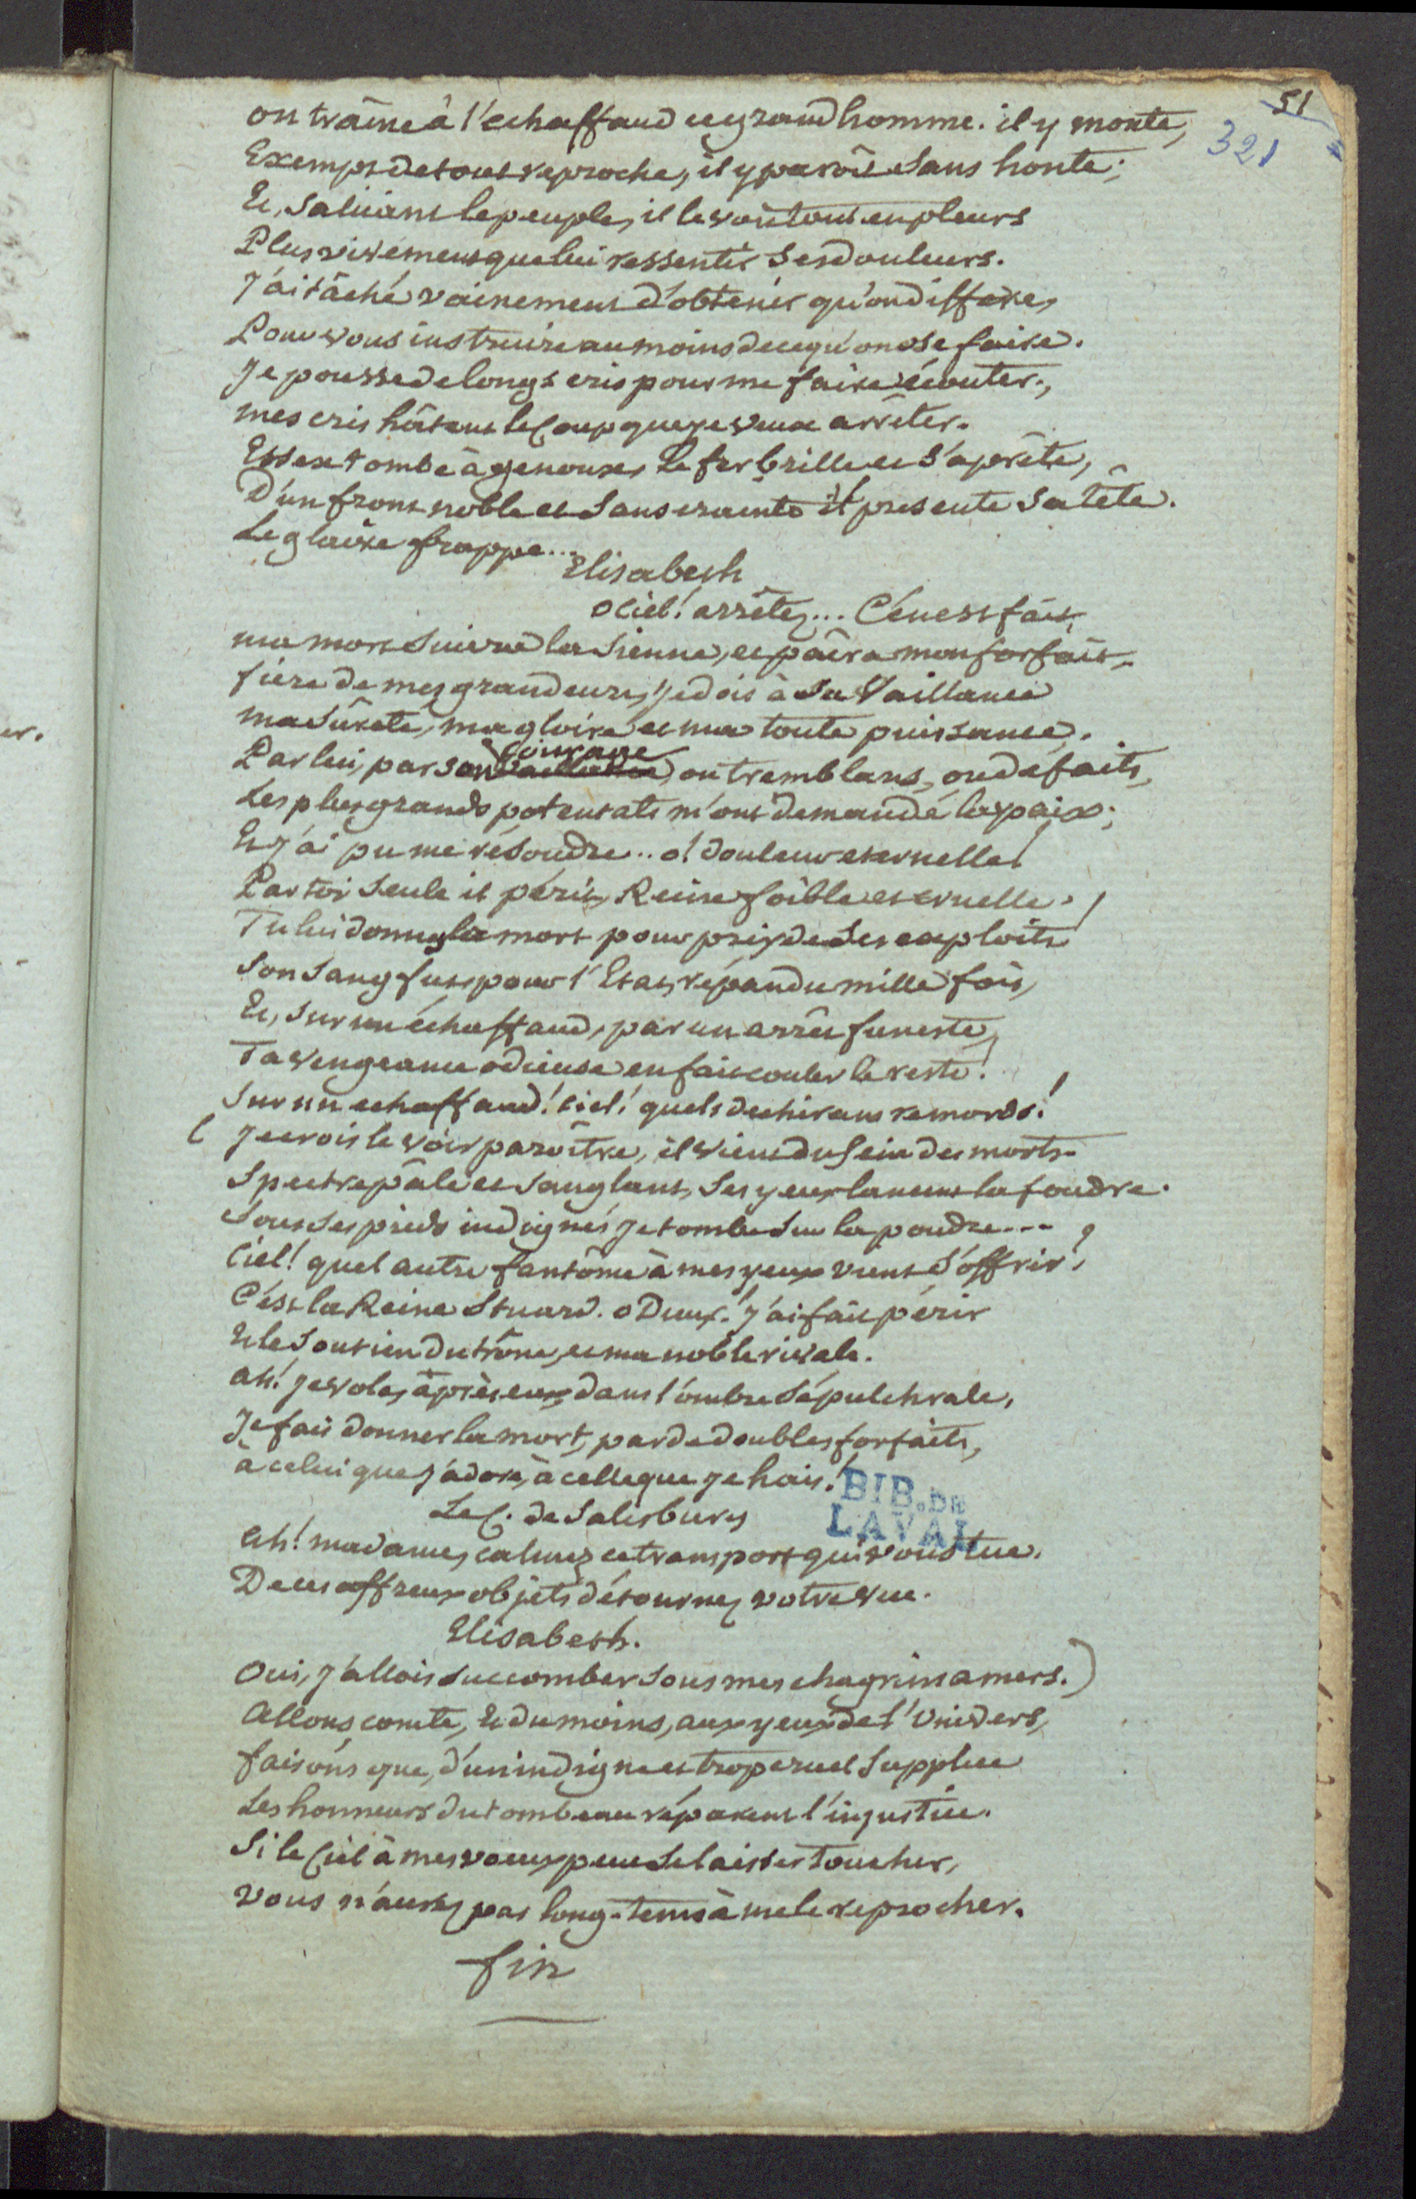 51
321
on traîne à l'echaffaud ce grand homme. il y monte,
Exempt de tout reproche, il y paroît sans honte;
Et, saluant le peuple, il le voit tout en pleurs
Plus vivement que lui ressentir ses douleurs.
J'ai tâché vainement d'obtenir qu'on differe,
Pour vous instruire au moins de ce qu'on ose faire.
Je pousse de longs cris pour me faire écouter;
mes cris hâtent le Coup que je veux arrêter.
Essex tombe à genoux, le fer brille et s'aprête,
D'un front noble et sans crainte il presente sa tête.
Le glaive frappe...
Elisabeth
o Ciel! arrêtez... C'en est fait,
ma mort suivra la sienne, et paîra mon forfait.
fiere de mes grandeurs, je dois à sa Vaillance
ma sûreté, ma gloire et ma toute puissance.
Par lui, par son courage, ou tremblans, ou défaits,
Les plus grands potentats m'ont demandé la paix;
Et j'ai pu me résoudre.. o! douleur eternelle!
Par toi seule il périt, Reine foible et cruelle!
Tu lui donnes la mort pour prix de ses exploits
Son sang fut pour l'Etat répandu mille fois,
Et, sur un échaffaud, par un arrêt funeste,
Ta vengeance odieuse en fait couler le reste!
Sur un echaffaud! ciel! quels dechirans remords!
( Je crois le voir paroître, il vient du sein des morts.
Spectre pâle et sanglant, ses yeux lancent la foudre.
Sous ses pieds indignés je tombe sur la poudre...
Ciel! quel autre fantôme à mes yeux vient s'offrir?
C'est la Reine Stuard. o Dieux! j'ai fait périr
Et le soutien du trône, et ma noble rivale.
ah! je vole, après eux, dans l'ombre sépulchrale,
Je fais donner la mort, par de doubles forfaits,
à celui que j'adore, à celle que je hais!
Le C. de Salisbury
ah! madame, calmez ce transport qui vous tue.
De ces affreux objets détournez votre vue.
Elisabeth.
Oui, j'allois succomber sous mes chagrins amers.)
Allons comte, Et du moins, aux yeux de l'Univers,
faisons que, d'un indigne et trop cruel supplice
Les honneurs du tombeau réparent l'injustice.
Si le Ciel à mes voeux peut se laisser toucher,
vous n'aurez pas long-tems à me le reprocher.
fin
BIB. DE
LAVAL
er.